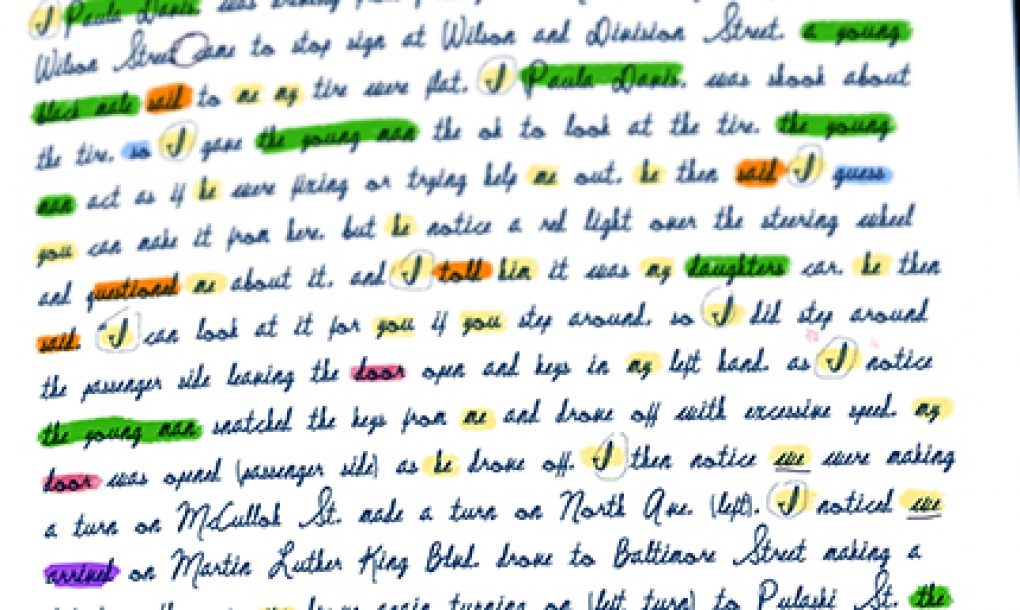 I Paula Davis. was
Wilson Street Came to stop sign at Wilson and Division Street. a young
black male said to me my tire were flat. I Paula Davis. was shook about
the tire. so I gave the young man the ok to look at the tire. the young
man act as if he were fixing or trying help me out. he then said I guess
you can make it from here. but he notice a red light over the steering wheel
and questioned me about it. and I told him it was my daughters car. he then
said. I can look at it for you if you step around. so I did step around
the passenger side leaving the door open and keys in my left hand. as I notice
the young man snatched the keys from me and drove off with excessive speed. my
door was opened (passenger side) as he drove off. I then notice we were making
a turn on McCulloh St. made a turn on North Ave. (left). I noticed we
arrived on Martin Luther King Blvd. drove to Baltimore Street making a
drove again turning on (left turn) to Pulaski St. the